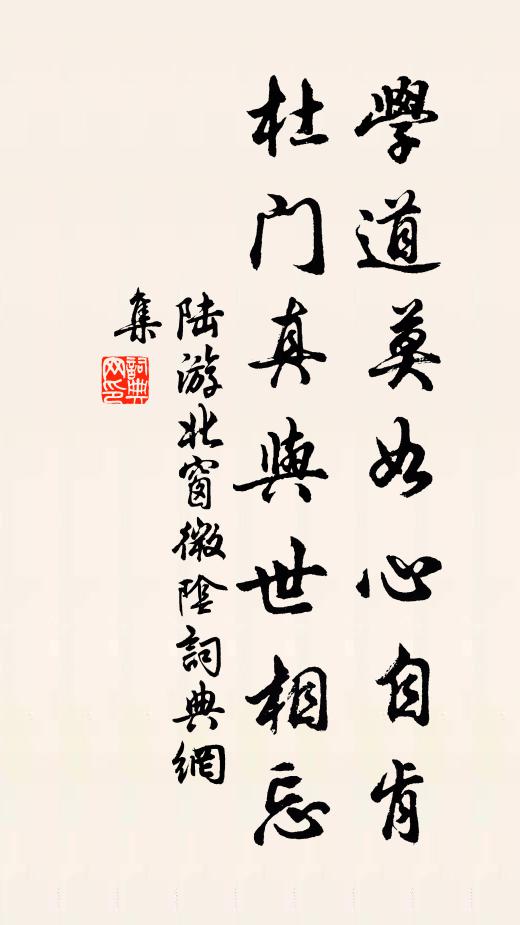 學道莫如心自肯
杜門真與世相忘
陸游北窗微陰詞典網
集
詞典
网印